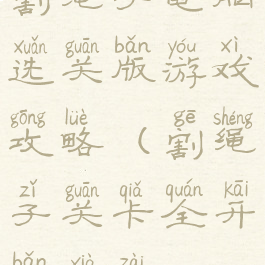 割绳子电脑
xuǎn guān bǎn yóu xì
选关版游戏
gōng lüè gē shéng
攻略（割绳
zǐ guān qiǎ quán kāi
子关卡全开
bǎn xià zài